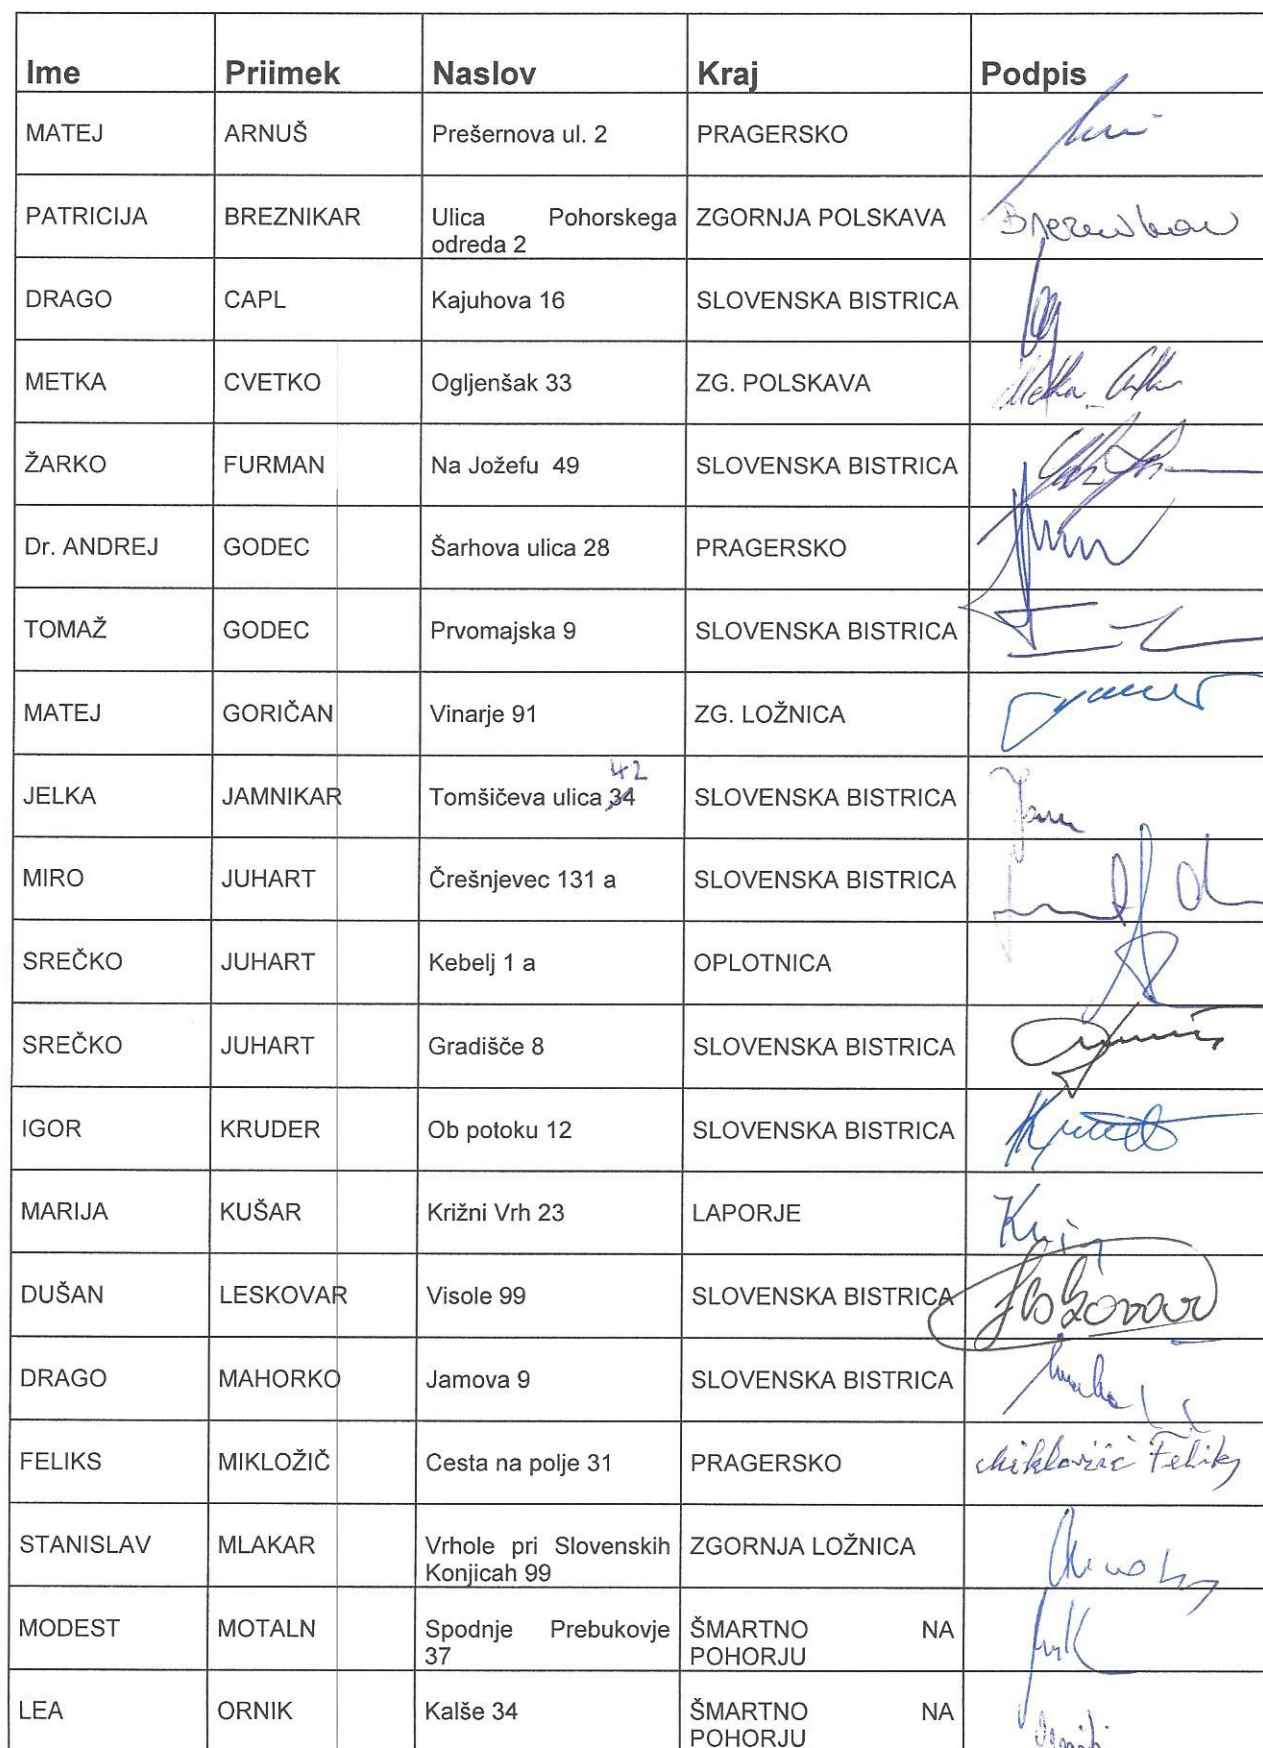 Ime Priimek Naslov Kraj Podpis
MATEJ ARNUŠ Prešernova ul. 2 PRAGERSKO
PATRICIJA BREZNIKAR Ulica Pohorskega ZGORNJA POLSKAVA
odreda 2
DRAGO CAPL Kajuhova 16 SLOVENSKA BISTRICA
METKA CVETKO Ogljenšak 33 ZG. POLSKAVA
ŽARKO FURMAN Na Jožefu 49 SLOVENSKA BISTRICA
Dr. ANDREJ GODEC Šarhova ulica 28 PRAGERSKO
TOMAŽ GODEC Prvomajska 9 SLOVENSKA BISTRICA
MATEJ GORIČAN Vinarje 91 ZG. LOŽNICA
42
JELKA JAMNIKAR Tomšičeva ulica 34 SLOVENSKA BISTRICA
MIRO JUHART Črešnjevec 131 a SLOVENSKA BISTRICA
SREČKO JUHART Kebelj 1 a OPLOTNICA
SREČKO JUHART Gradišče 8 SLOVENSKA BISTRICA
IGOR KRUDER Ob potoku 12 SLOVENSKA BISTRICA
MARIJA KUŠAR Križni Vrh 23 LAPORJE
DUŠAN LESKOVAR Visole 99 SLOVENSKA BISTRICA
DRAGO MAHORKO Jamova 9 SLOVENSKA BISTRICA
FELIKS MIKLOŽIČ Cesta na polje 31 PRAGERSKO Feliks
STANISLAV MLAKAR Vrhole pri Slovenskih ZGORNJA LOŽNICA
Konjicah 99
MODEST MOTALN Spodnje Prebukovje ŠMARTNO NA
37 POHORJU
LEA ORNIK Kalše 34 ŠMARTNO NA
POHORJU